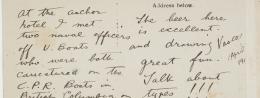 Address below.
at the anchor
hotel I met
two naval officers
off U. Boats
who were both
caricatured on the
C.P.R. Boats in
British Columbia on
The beer here
is excellent.
and drowning
great fun.
Talk about
types !!!